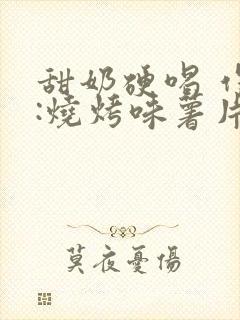 甜奶硬唱
:燒烤味薯片
莫夜憂傷